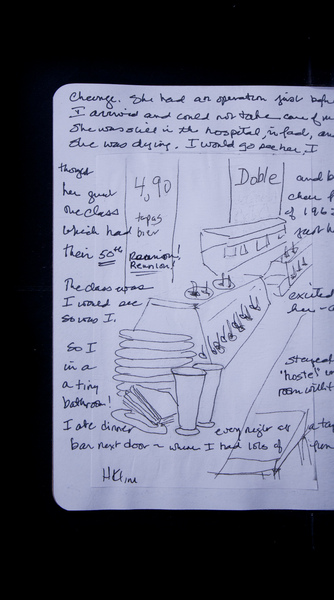 change. She had an operation just before
I arrived and could not take care of m
She was still in the hospital, in fact, an
She was dying. I would go see her, I
thought
her great
one class
which had
their 50th
Reunion!
Reunion!
4,90
tapas
bier
Doble
and b
chair
of 196
just h
The class was
I would see
so was I.
excited
her - a
So I
in a
a tiny
bathroom!
stayed
"hostel" in
room with
I ate dinner every night at a ta
bar next door - where I had lots of fun
HKline